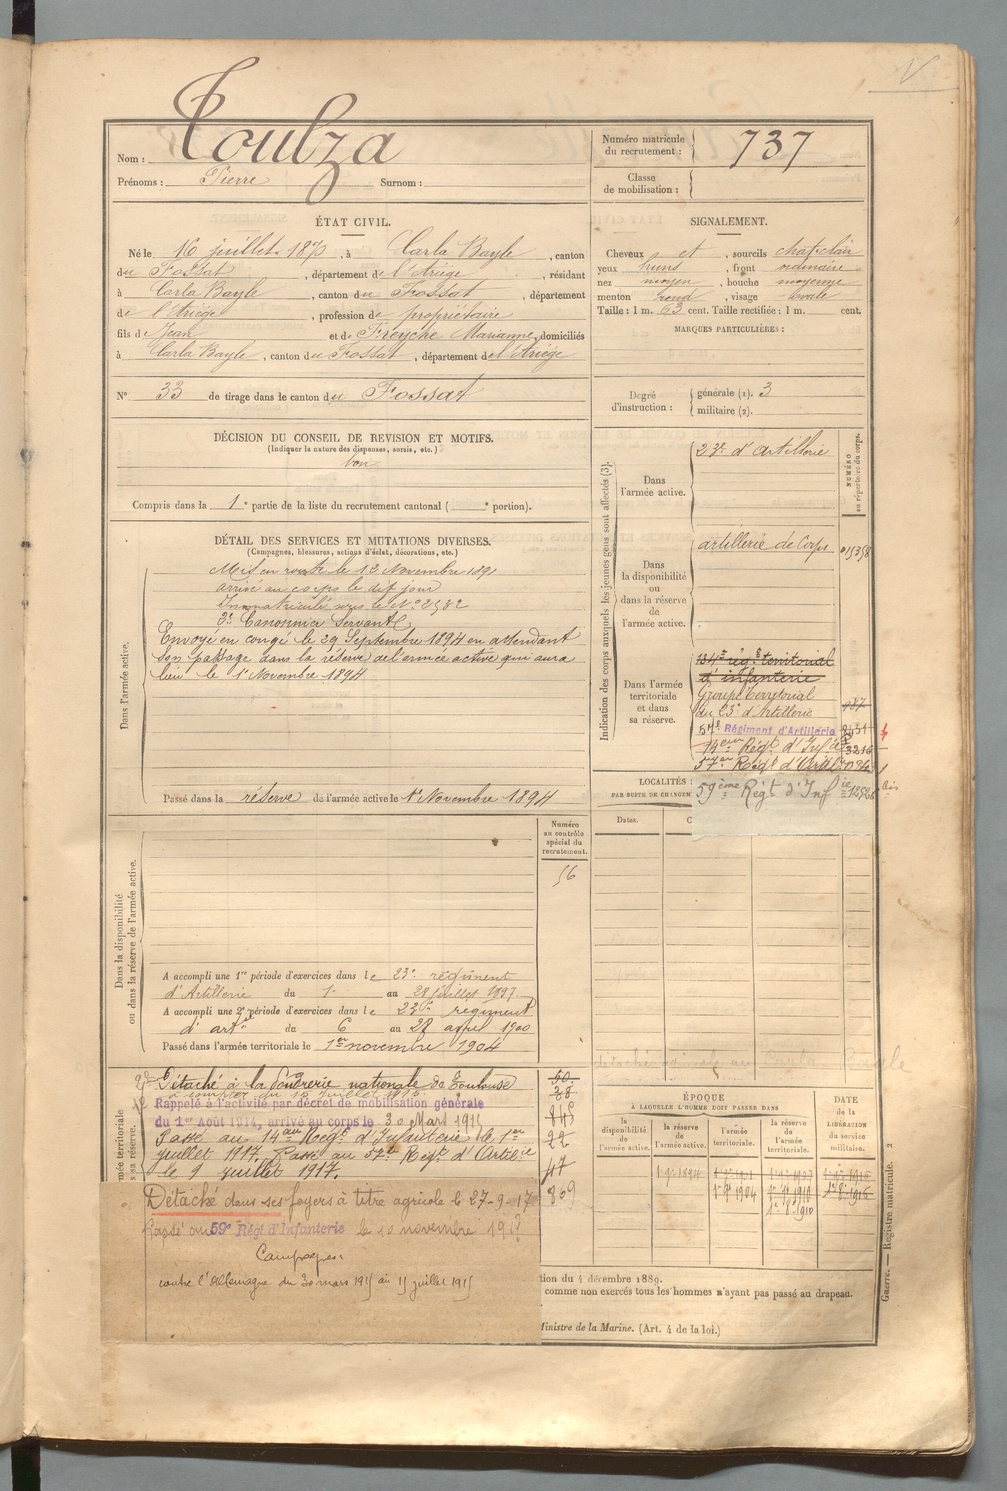 Nom : Toulza
Prénoms : Pierre Surnom :
Numéro matricule du recrutement : 737
Classe de mobilisation :
ÉTAT CIVIL.
Né le 16 juillet 1870, à Carla Bayle, canton
du Fossat, département de l'Ariège, résidant
à Carla Bayle, canton du Fossat, département
de l'Ariège, profession de propriétaire
fils de Jean et de Freyche Marianne, domiciliés
à Carla Bayle, canton du Fossat, département de l'Ariège
N° 33 de tirage dans le canton du Fossat
SIGNALEMENT.
Cheveux et, sourcils chat. clair
yeux, front ordinaire
nez moyen, bouche moyenne
menton rond, visage ovale
Taille : 1 m. 63 cent. Taille rectifiée : 1 m. cent.
MARQUES PARTICULIÈRES :
Degré d'instruction : générale (1). 3
militaire (2).
DÉCISION DU CONSEIL DE REVISION ET MOTIFS.
(Indiquer la nature des dispenses, sursis, etc.)
bon
Compris dans la 1e partie de la liste du recrutement cantonal ( e portion).
DÉTAIL DES SERVICES ET MUTATIONS DIVERSES.
(Campagnes, blessures, actions d'éclat, décorations, etc.)
Dans l'armée active.
Mis en route le 12 Novembre 1891
arrivé au corps le dit jour
Immatriculé sous le N° 2532
2e Canonnier Servant
Envoyé en congé le 29 Septembre 1894 en attendant
son passage dans la réserve de l'armée active qui aura
lieu le 1er Novembre 1894
Passé dans la réserve de l'armée active le 1er Novembre 1894
Indication des corps auxquels les jeunes gens sont affectés (3).
NUMÉRO au répertoire du corps.
Dans l'armée active.
23e d'Artillerie
Dans la disponibilité ou dans la réserve de l'armée active.
artillerie de Corps 01535
Dans l'armée territoriale et dans sa réserve.
134e rég. territorial
d'infanterie
Groupe territorial
du 23e d'Artillerie
57e Régiment d'Artillerie
14eme Régt d'Infie 3216
57eme Régt d'Artie
59ème Régt d'Infie
LOCALITÉS
PAR SUITE DE CHANGEM
Dates.
Dans la disponibilité ou dans la réserve de l'armée active.
Numéro au contrôle spécial du recrutement.
56
A accompli une 1re période d'exercices dans le 23e régiment
d'Artillerie du 1er au 28 juillet 1897.
A accompli une 2e période d'exercices dans le 23e régiment
d'artie du 6 au 28 avril 1900
Passé dans l'armée territoriale le 1er novembre 1904
Détaché à la Poudrerie nationale de Toulouse
à compter du 15 juillet 1915.
Rappelé à l'activité par décret de mobilisation générale
du 1er Août 1914, arrivé au corps le 30 Mars 1915
Passé au 14eme Régt d'Infanterie le 1er
juillet 1917. Passé au 57e Régt d'Artillie
le 9 juillet 1917.
50
38
845
22
47
869
Détaché dans ses foyers à titre agricole le 27-9-17
Passé au 59e Régt d'Infanterie le 10 novembre 1917
Campagnes:
contre l'Allemagne du 30 mars 1915 au 15 juillet 1915
ÉPOQUE
À LAQUELLE L'HOMME DOIT PASSER DANS
la disponibilité de l'armée active.
la réserve de l'armée active.
l'armée territoriale.
la réserve de l'armée territoriale.
DATE de la LIBÉRATION du service militaire.
1er 9e 1894
1er 9e 1904
1er 9e 1910
1er 8e 1910
tion du 4 décembre 1889.
comme non exercés tous les hommes n'ayant pas passé au drapeau.
Ministre de la Marine. (Art. 4 de la loi.)
Guerre. — Registre matricule. 2